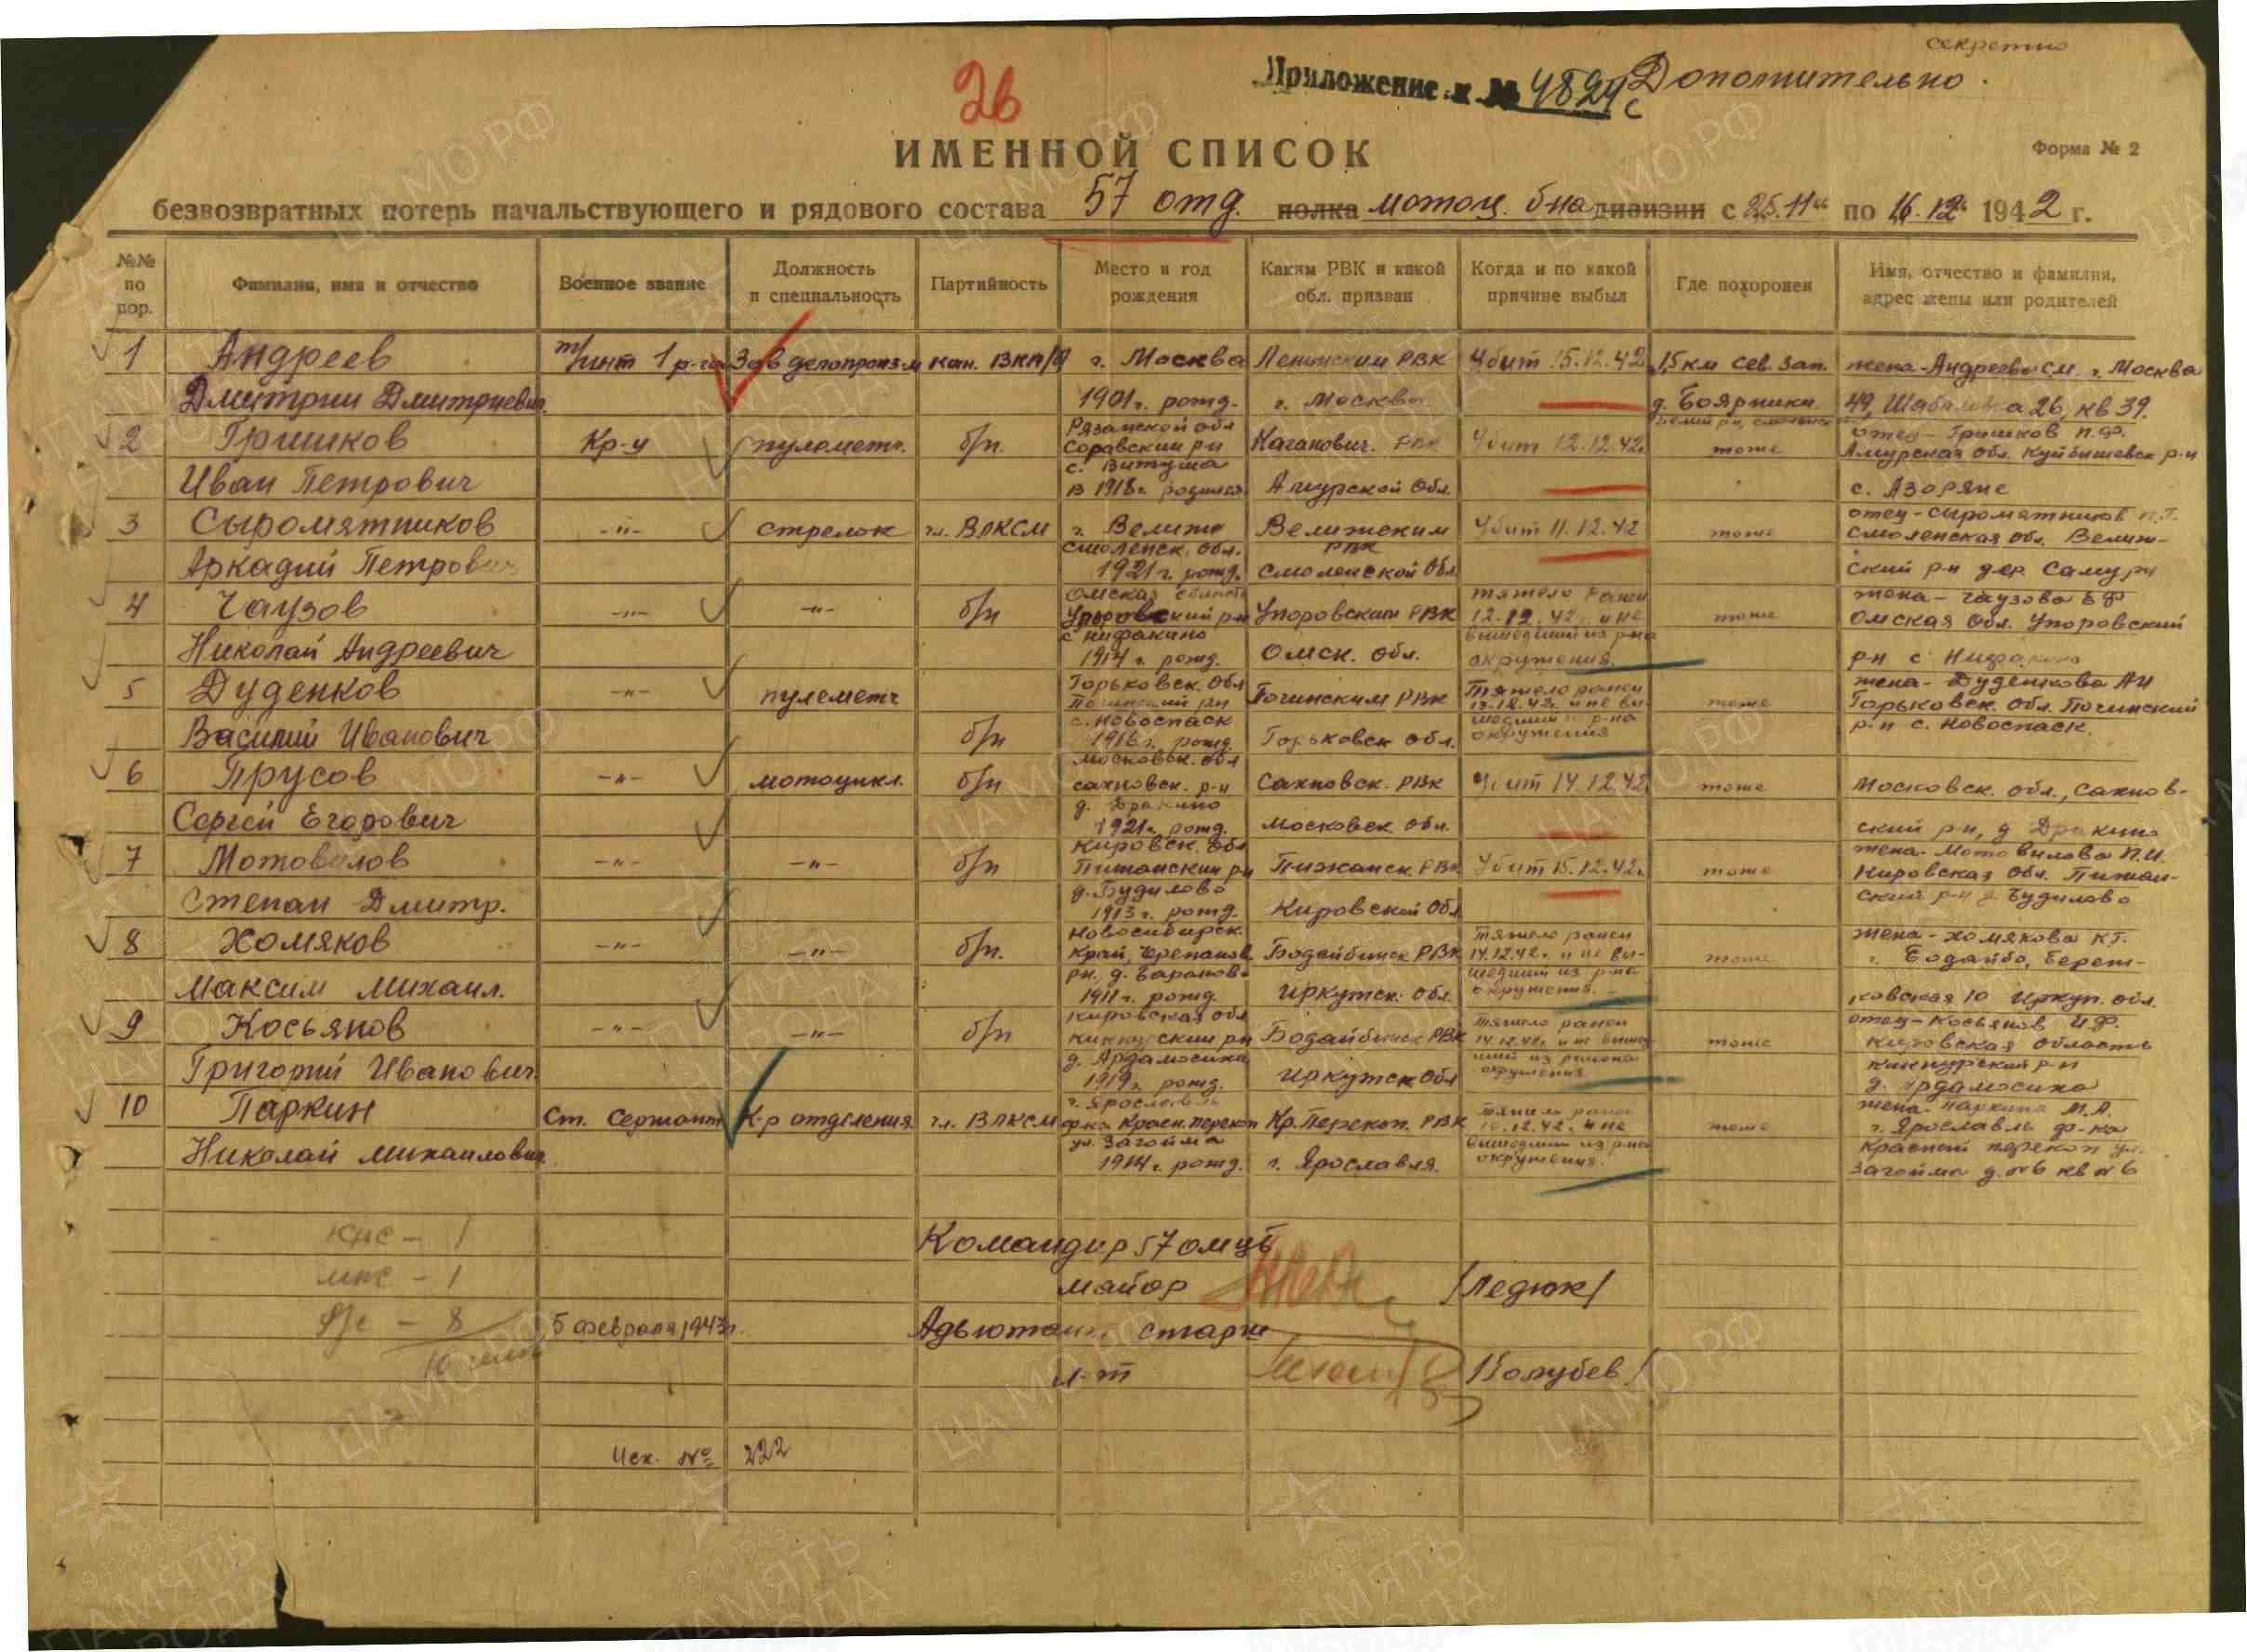 секретно
26
Приложение к № 4824с Дополнительно.
ИМЕННОЙ СПИСОК
Форма № 2
безвозвратных потерь начальствующего и рядового состава 57 отд. полка мотоц. б-на дивизии с 25.11 по 16.12 1942 г.
№№ по пор.
Фамилия, имя и отчество
Военное звание
Должность и специальность
Партийность
Место и год рождения
Каким РВК и какой обл. призван
Когда и по какой причине выбыл
Где похоронен
Имя, отчество и фамилия, адрес жены или родителей
1 Андреев т/инт 1 р-га Зав делопроиз-м кан. ВКП/б г. Москва Ленинским РВК Убит 15.12.42 1,5 км сев. зап. жена-Андреева С.М. г. Москва
Дмитрий Дмитриевич 1901 г. рожд. г. Москвы д. Боярники 49, Шаболовка 26, кв 39.
2 Гришков Кр-ц пулеметч. б/п. Рязанской обл Каганович. РВК Убит 12.12.42 тоже отец-Гришков П.Ф.
Сараевский р-н Амурская обл. Куйбышевск р-н
с. Витуша
Иван Петрович в 1918 г. родился Амурской обл. с. Азоряне
3 Сыромятников -"- стрелок чл. ВЛКСМ г. Велиж Велижским Убит 11.12.42 тоже отец-Сыромятников П.Т.
Смоленск. обл. РВК Смоленская обл. Велиж-
Аркадий Петрович 1921 г. рожд. Смоленской обл ский р-н дер. Самури
4 Чаузов -"- -"- б/п Омская область тяжело ранен жена-Чаузова
Упоровский р-н Упоровским РВК 12.12.42. и не тоже Омская обл. Упоровский
с Нифакино вышедший из р-на
Николай Андреевич 1914 г. рожд. Омск. обл. окружения. р-н с Нифакино
5 Дуденков -"- пулеметч Горьковск. обл Починским РВК Тяжело ранен тоже жена-Дуденкова АИ
Починский р-н 13.12.42. и не вы- Горьковск. обл. Починский
с. Новоспаск шедший р-на р-н с. Новоспаск.
Василий Иванович б/п 1916 г. рожд. Горьковск обл. окружения
6 Прусов -"- мотоцикл. б/п Московск. обл Сахновск. РВК Убит 14.12.42 тоже Московск. обл., Сахнов-
сахновск. р-н
д. Дракино
Сергей Егорович 1921 г. рожд. Московск. обл. ский р-н, д Дракино
7 Мотовилов -"- -"- б/п Кировск. обл Пижанск. РВК Убит 15.12.42 тоже жена-Мотовилова П.И.
Пижанский р-н Кировская обл. Пижан-
д. Будилово
Степан Дмитр. 1913 г. рожд. Кировской обл ский р-н д. Будилово
8 Хомяков -"- -"- б/п. Новосибирск. Бодайбинск РВК Тяжело ранен тоже жена-Хомякова К.Г.
край, Черепанов. 14.12.42 г. и не вы- г. Бодайбо, Береж-
рн, д. Баранов. шедший из р-на
Максим Михаил. 1911 г. рожд. Иркутск. обл. окружения. ковская 10 Иркут. обл.
9 Косьянов -"- -"- б/п Кировская обл Бодайбинск РВК Тяжело ранен тоже отец-Косьянов И.Ф.
Кикнурский рн 14.12.42 г. и не вышед- Кировская область
д. Ардамосиха ший из района Кикнурский р-н
Григорий Иванович 1919 г. рожд. Иркутск обл окружения д. Ардамосиха
10 Паркин Ст. Сержант К-р отделения чл. ВЛКСМ г. Ярославль Кр. Перекоп. РВК тяжело ранен тоже жена-Паркина М.А.
ф-ка Красн. перекоп .12.42. и не г. Ярославль ф-ка
ул. Загойма вышедший из р-на Красный перекоп ул.
Николай Михайлович 1914 г. рожд. г. Ярославля. окружения. Загойма д.№6 кв №6
кнс - 1
мнс - 1
р/с - 8
10 челов
Командир 57 омцб
майор /Ледюк/
5 февраля 1943 г.
Адьютант старш
л-т /Голубев/
Исх. № 222